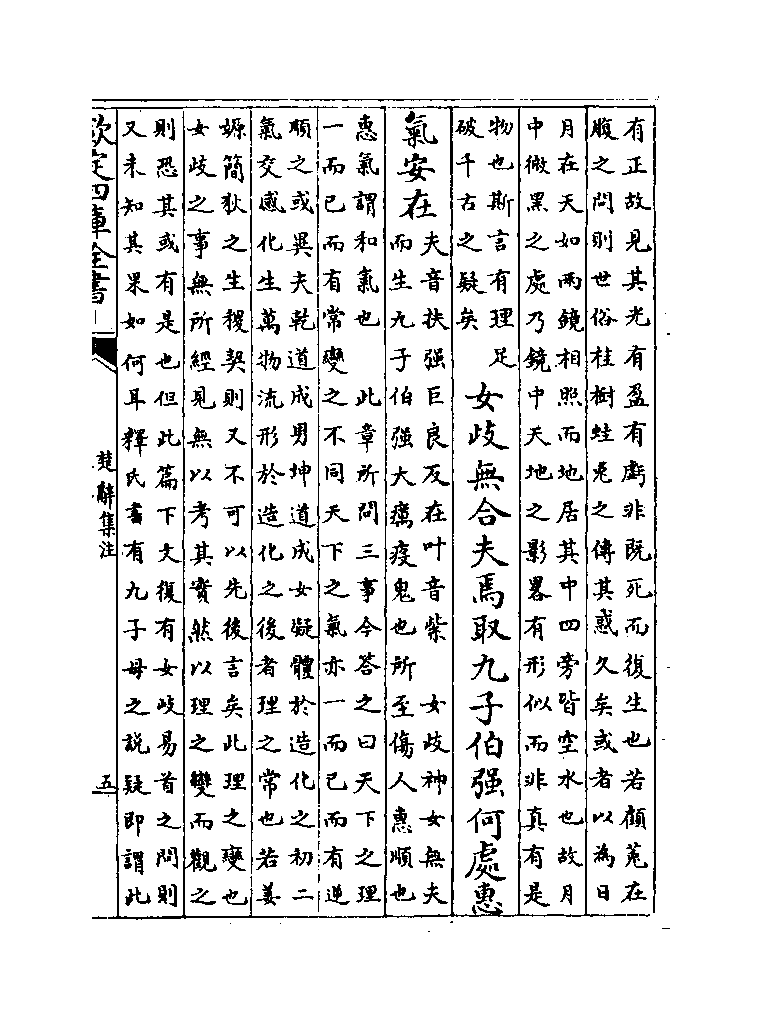 有正故見其光有盈有虧非既死而復生也若顧菟在
腹之問則世俗桂樹蛙兎之傳其惑久矣或者以為日
月在天如兩鏡相照而地居其中四旁皆空水也故月
中微黒之處乃鏡中天地之影畧有形似而非真有是
物也斯言有理足
破千古之疑矣
女歧無合夫焉取九子伯强何處惠
氣安在
夫音扶强巨良反在叶音紫 女歧神女無夫
而生九子伯强大癘疫鬼也所至傷人惠順也
惠氣謂和氣也 此章所問三事今答之曰天下之理
一而已而有常變之不同天下之氣亦一而已而有逆
順之或異夫乾道成男坤道成女凝體於造化之初二
氣交感化生萬物流形於造化之後者理之常也若姜
嫄簡狄之生稷契則又不可以先後言矣此理之變也
女歧之事無所經見無以考其實然以理之變而觀之
則恐其或有是也但此篇下文復有女歧易首之問則
又未知其果如何耳釋氏書有九子母之說疑即謂此
欽定四庫全書
楚辭集注
五